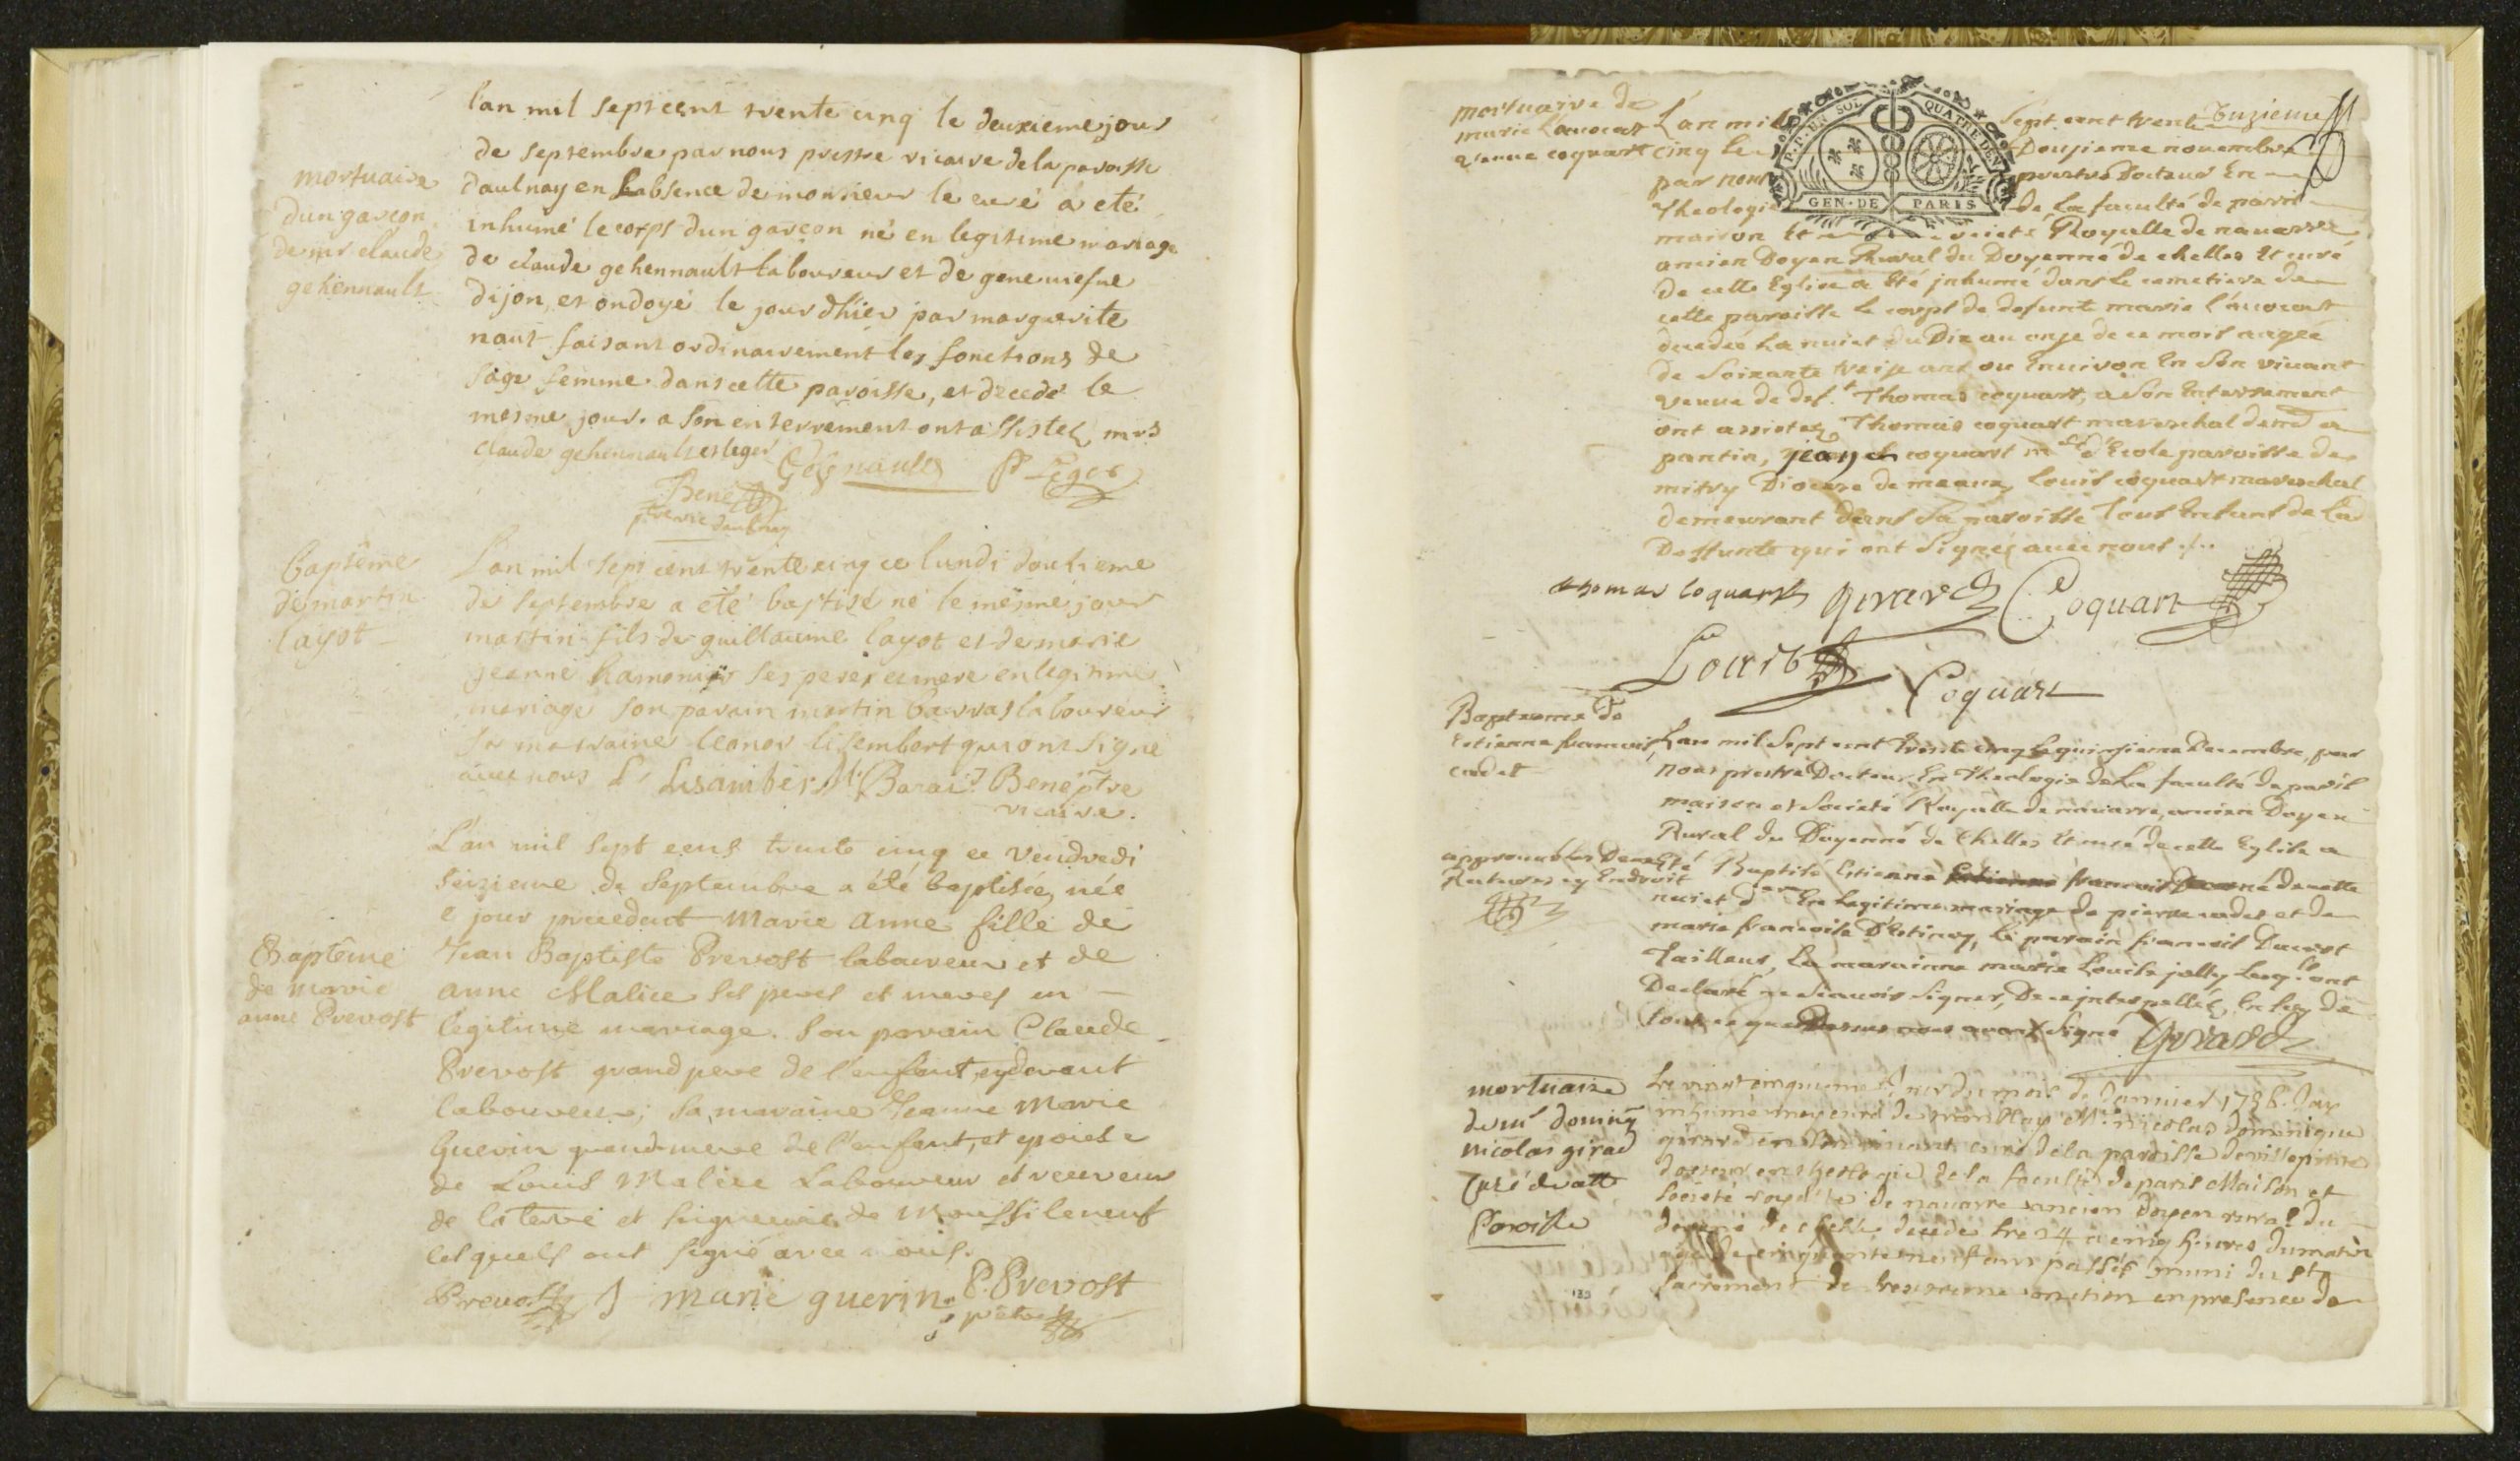 l'an mil sept cent trente cinq le deuxieme jour
de septembre par nous prestre vicaire de la paroisse
mortuaire
dun garçon
de mr claude
gehennault
daulnay en L'absence de monsieur le curé a eté
inhumé le corps dun garçon né en legitime mariage
de claude gehennault laboureur et de geneviefve
dijon, et ondoyé le jour d'hier par marguerite
naut faisant ordinairement les fonctions de
sage femme dans cette paroisse, et decedé le
mesme jour. a son enterrement ont assistez mrs
claude gehennault et leger Gehenaults P Leger
Bene
ptre vic daulnay
baptême
de martin
layot
L'an mil sept cent trente cinq ce lundi douzieme
de septembre a eté baptisé né le mesme jour
martin fils de guillaume layot et de marie
jeanne hamonier ses pere et mere en legitime
mariage son parain martin barras laboureur
sa marraine leonor lisembert qui ont signé
avec nous L Lisamber M Barai Bene ptre
vicaire.
L'an mil sept cens trente cinq ce vendredi
seizieme de septembre a été baptisée, née
le jour precedent Marie Anne fille de
Baptême
de marie
anne Prevost
Jean Baptiste Prevost laboureur et de
anne Malice ses peres et meres en
legitime mariage. son parain Claude
Prevost grand pere de l'enfant, cydevant
laboureur; sa maraine Jeanne Marie
Guerin grand-mere de l'enfant, et epouse
de Louis Malice Laboureur et receveur
de la terre et seigneurie de Moussileneuf
lesquels ont signé avec nous.
Prevost J marie guerin P. Prevost
ptre
mortuaire de
marie Lauocat
veuue coquart
P.P. EN SOL QUATRE DEN
GEN. DE PARIS
Onzieme
L'an mil Sept cent trent
cinq le Douzieme nouembre
par nous prestre Docteur En
Theologie de La faculté de paris
maison Et societé Royalle de nauarre
ancien Doyen Rural du Doyenné de chelles Et curé
de cette Eglise a Eté jnhumé dans le cemetiere de
cette paroisse le corps de defunte marie l'auocat
decedée La nuict du Dix au onze de ce mois aagée
de Soixante treize ans ou Enuiron En Son viuant
veuue de def.t Thomas coquart, a Son Enterrement
ont assistez Thomas coquart mareschal dem.t a
pantin, jean coquart m.e d'Ecole paroisse de
mitry Diocese de meaux, Louis coquart mareschal
demeurant dans Sa paroisse Tous Enfans de La
Deffunte qui ont Signéz auec nous ./.
thomas coquart Girard Coquart
Louis
Coquart
Baptesme De
Estienne francois
cadet
L'an mil Sept cent trente cinq le quinzieme Decembre, par
nous prestre Docteur En Theologie de La faculté de paris
maison et Societé Royalle de nauarre, ancien Doyen
Rural du Doyenné de Chelles Et curé de cette Eglise a
Eté Baptisé Estienne francois né de cette
nuict En Legitime mariage de pierre cadet et de
marie francoise D'Estincy, le parain francois Ducrot
Tailleur, La marainne marie Louise jolly Lesq.ls ont
Declaré ne Scauoir Signer, De ce jnterpellés, En foy de
tout ce que Dessus nous auons Signé Girard
mortuaire
de mr dominiq
Nicolas girad
Curé de cette
Paroisse
Le vingt cinquieme jour du mois de Janvier 1736. a été
inhumé par curé de tremblay Mre nicolas dominique
girard en son vivant curé de la paroisse de villepinte
docteur en theologie de la faculté de paris Maison et
Societé royalle de navarre ancien doyen rural du
doyené de chelle decedé le 24 a cinq heures du matin
agé de cinquante neuf ans passés muni du st
sacrement de l'extreme onction en presence de
133